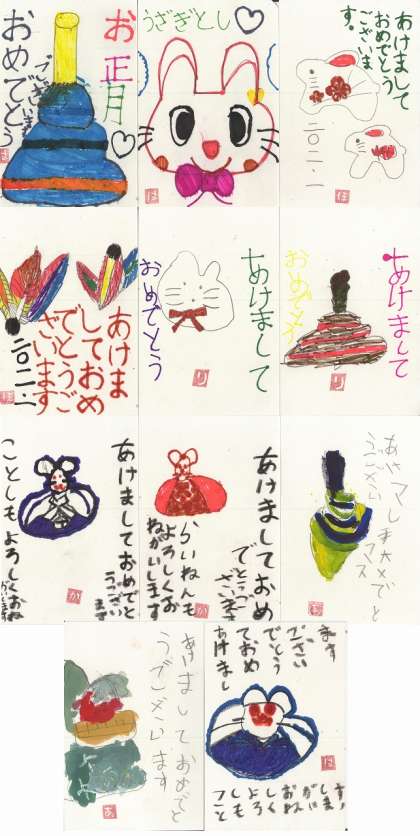 お正月
おめでとう
ございます
うさぎとし
あけまして
おめでとう
ございま
す。
二〇一一.一
ほ
あけま
しておめ
でとうご
ざいます
二〇一一.一
あけまして
おめでとう
り
あけまして
おめでとう
り
あけましておめでと
うござい
ます
ことしもよろしくおね
がいします
か
あけましておめ
でとうご
ざいます
らいねんも
よろしくお
ねがいします
か
あ
あけましておめでと
うございます
あ
あけまし
ておめ
でとう
ござい
ます
こと
しも
よろ
しく
おね
がい
しま
す。
ほ